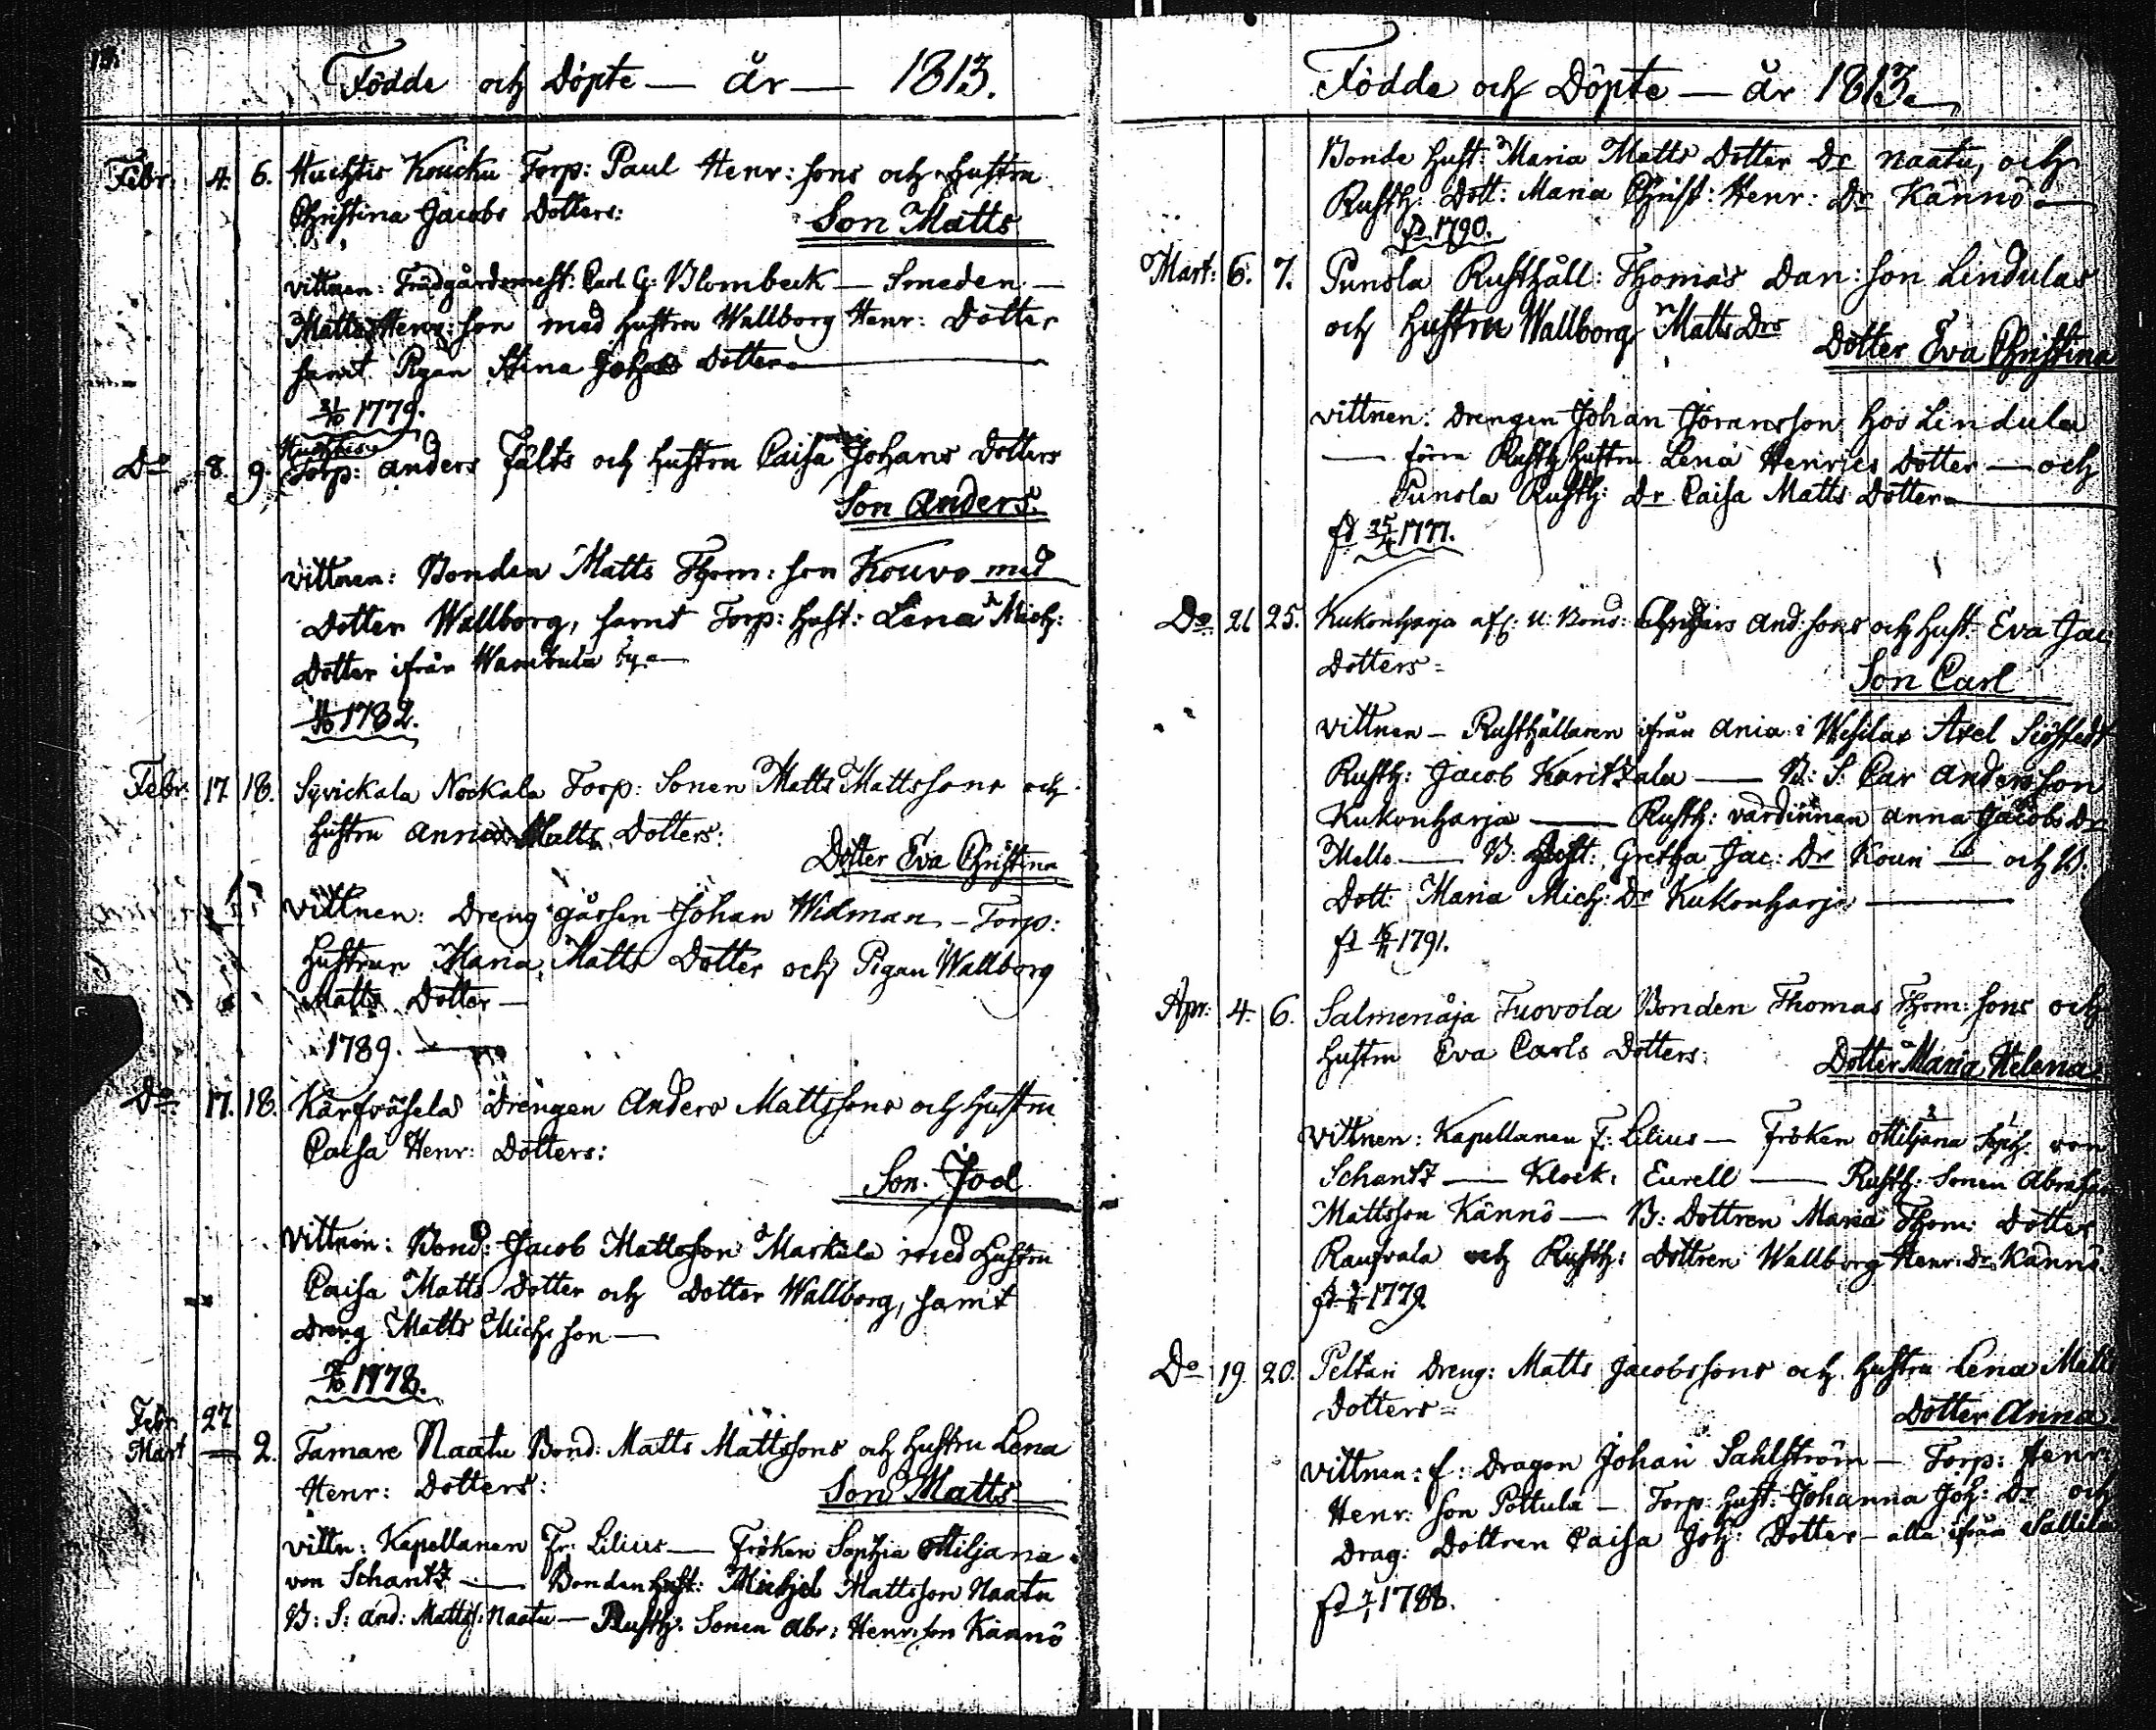 Födde och Döpte — år — 1813.
Febr: 4. 6. Huchtis Koucku Torp: Paul Henr: sons och hustru
Christina Jacobs Dotters:
Son Matts
vittnen: Trädgårdsmest: Carl G: Blombeck — Smeden —
Matts Henr: son med hustru Wallborg Henr: Dotter
samt Pigan Stina Johans Dotter —
1779.
Huchtis
Do 8. 9. Torp: Anders Fälts och hustru Caisa Johans Dotters
Son Anders.
vittnen: Bonden Matts Thom: son Kouvo med
Dotter Wallborg, samt Torp: hust: Lena Mich:
Dotter ifrån Wambula by —
1782.
Febr: 17. 18. Syvickala Nockala Torp: Sonen Matts Mattssons och
hustru Anna Matts Dotters:
Dotter Eva Christina
vittnen: Dreng gåssen Johan Widman — Torp:
hustrun Maria Matts Dotter och Pigan Wallborg
Matts Dotter —
1789. —
Do 17. 18. Kärfväselä Drengen Anders Mattssons och hustru
Caisa Henr: Dotters:
Son Joel
vittnen: Bond: Jacob Mattsson Markula med hustru
Caisa Matts Dotter och Dotter Wallborg, samt
Dreng Matts Mich: son —
1778.
Febr 27
Mart — 2. Tamare Naatu Bond: Matts Mattssons och hustru Lena
Henr: Dotters:
Son Matts
vittn: Kapellanen Fr: Lilius — Fröken Sophia Ottiljana
von Schantz — Bonden hust: Michjel Mattsson Naatu
B: S: And: Matts: Naatu — Rusth: Sonen Abr: Henr: son Kännö
Födde och Döpte — år 1813.
Bonde hust: Maria Matts Dotter Dr Naatu, och
Rusth: Dott: Maria Christ: Henr: Dr Kännö —
fd 1790.
Mart: 6. 7. Punola Rusthåll: Thomas Dan: son Lindulas
och hustru Wallborg Matts Drs
Dotter Eva Christina
vittnen: Drengen Johan Jöransson hos Lindula
— förra Rusth hustru Lena Henrics Dotter — och
Punola Rusth: Dr Caisa Matts Dotter —
fd 25/4 1777.
Do 21 25. Kukonharja afs: u: Bond: And: sons och hust: Eva Jac:
Dotters =
Son Carl
vittnen — Rusthållaren ifrån Ania i Wesilax Axel Siöstedt
Rusth: Jacob Karitzala — B: S: Car Andersson
Kukonharja — Rusth: värdinnan Anna Jacobs Dr
Mello — B: hust: Gretha Jac: Dr Kouri — och B:
Dott: Maria Mich: Dr Kukonharja —
fd 1791.
Apr: 4. 6. Salmenåja Tuovola Bonden Thomas Thom: sons och
hustru Eva Carls Dotters:
Dotter Maria Helena
vittnen: Kapellanen F: Lilius — Fröken Ottiljana Soph: von
Schantz — Klock: Eurell — Rusth: Sonen Abraham
Mattsson Kännö — B: Dottren Maria Thom: Dotter
Raufvala och Rusth: Dottren Wallborg Henr: Dr Kännö.
fd 1779.
Do 19. 20. Peltari Dreng: Matts Jacobssons och hustru Lena Matts
Dotters =
Dotter Anna
vittnen: f: Dragon Johan Sahlström — Torp: Henr:
Henr: son Pottula — Torp: hust: Johanna Joh: Dr och
Drag: Dottren Caisa Joh: Dotter — alla ifrån Sallila
fd 1788.